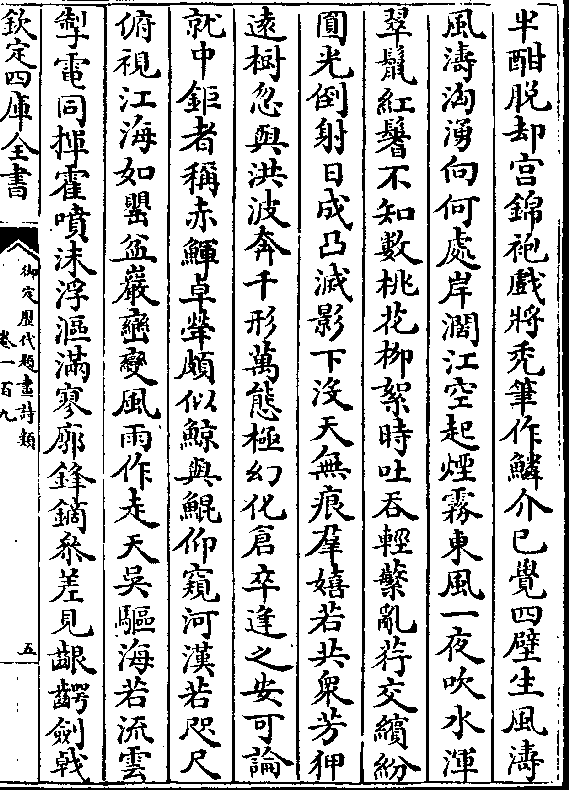 半酣脱却宫錦袍戲將秃筆作鱗介已覺四壁生風濤
風濤洶湧向何處岸濶江空起煙霧東風一夜吹水渾
翠鬛紅鬐不知數桃花柳絮時吐吞輕蘩亂荇交繽紛
圓光倒射日成凸滅影下沒天無痕羣嬉若共衆芳狎
逺樹忽與洪波奔千形萬態極幻化倉卒逢之安可論
就中鉅者稱赤鯶卓犖頗似鯨與鯤仰窺河漢若咫尺
俯視江海如罌盆巖巒變風雨作走天吳驅海若流雲
掣電同揮霍噴沫浮漚滿寥廓鋒鏑叅差見齦齶劍戟
欽定四庫全書
御定歴代題畫詩類
卷一百九
五